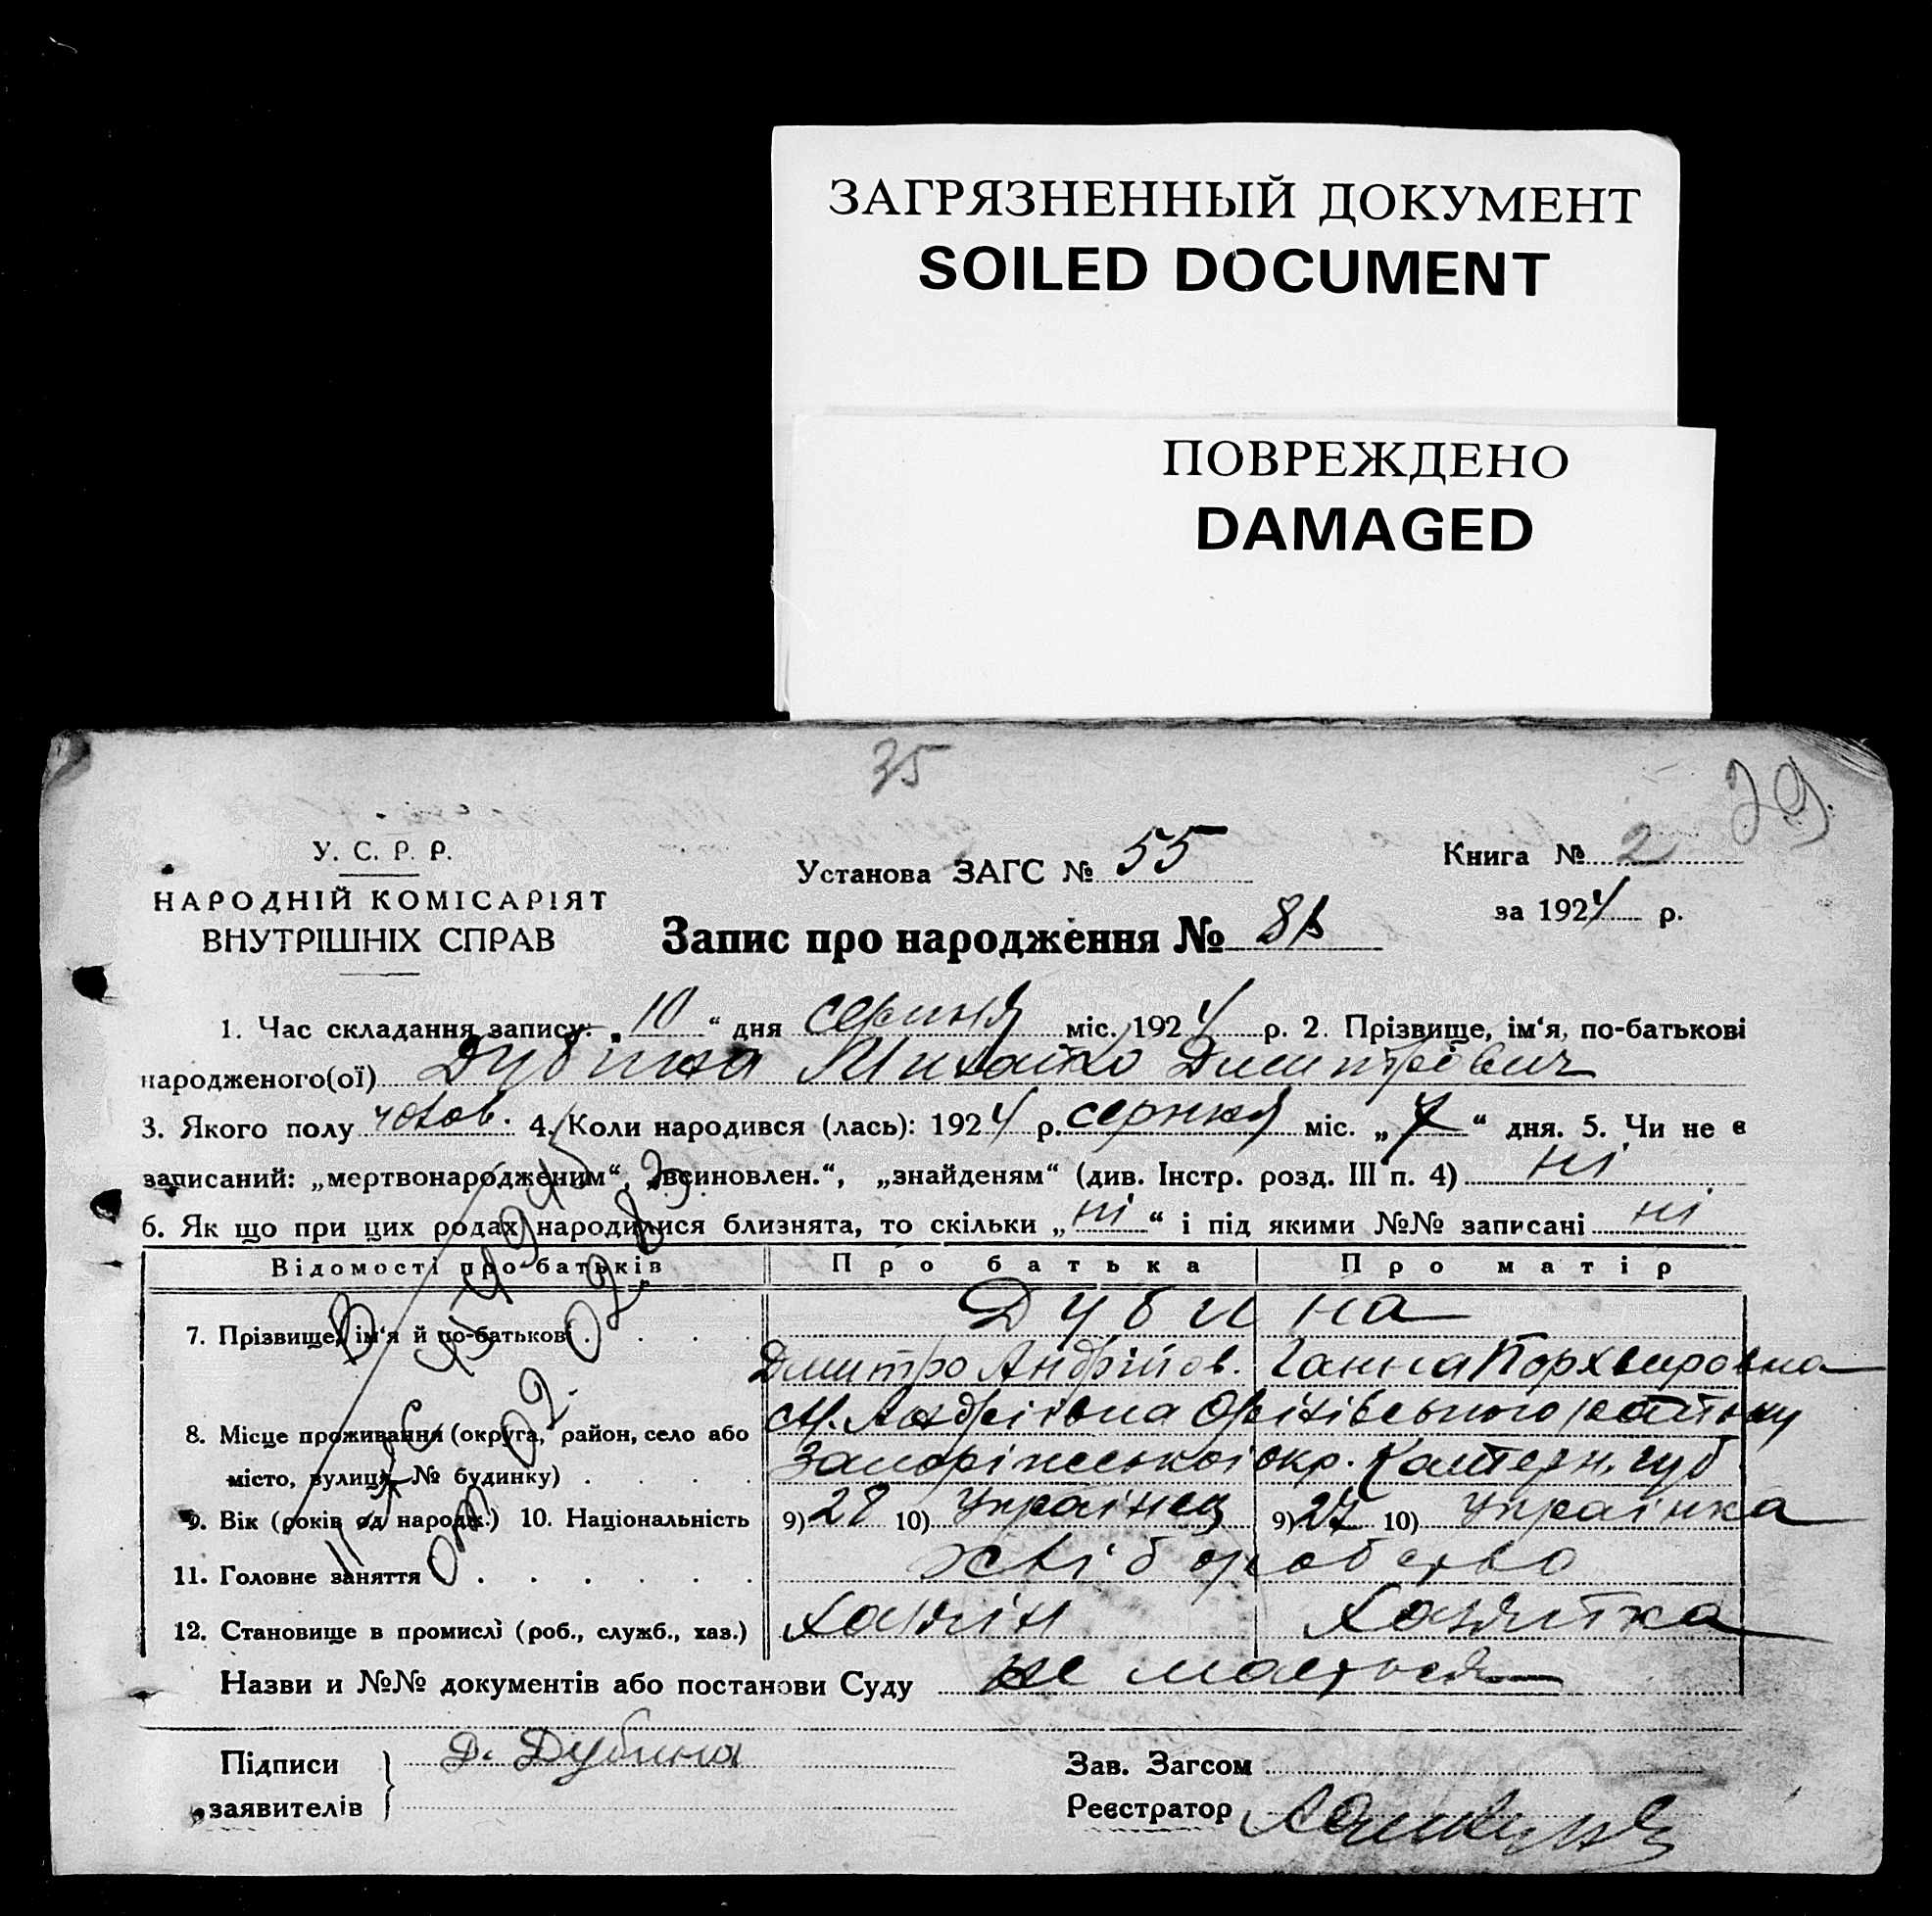 ЗАГРЯЗНЕННЫЙ ДОКУМЕНТ
SOILED DOCUMENT
ПОВРЕЖДЕНО
DAMAGED
35
29.
У. С. Р. Р.
НАРОДНІЙ КОМІСАРІЯТ
ВНУТРІШНІХ СПРАВ
Установа ЗАГС № 55
Запис про народження №
Книга № 2
за 1924 р.
1. Час складання запису: „10“ дня серпня міс. 1924 р. 2. Прізвище, ім‘я, по-батькові
народженого(ої) Дубина Михайло Дмитрович
3. Якого полу чолов. 4. Коли народився (лась): 1924 р. серпня міс. „7“ дня. 5. Чи не є
записаний: „мертвонародженим“, „всиновлен.“, „знайденям“ (див. Інстр. розд. III п. 4) ні
6. Як що при цих родах народилися близнята, то скільки „ні“ і під якими №№ записані ні
Відомості про батьків Про батька Про матір
7. Прізвище, ім‘я й по-батькові . . . . Дубина
Дмитро Андрійов. Ганна Порхвировна
8. Місце проживання (округа, район, село або
місто, вулиця, № будинку) . . . .
Оріхівського району
Запоріжської окр. Катерн. губ
9. Вік (років од народж.) 10. Національність 9) 28 10) Українец 9) 27 10) Українка
11. Головне заняття . . . . . . хліборобство
12. Становище в промислі (роб., служб., хаз.) Хазяін Хазяйка
Назви и №№ документів або постанови Суду не мається
Підписи
заявителів
Д. Дубина
Зав. Загсом
Реєстратор